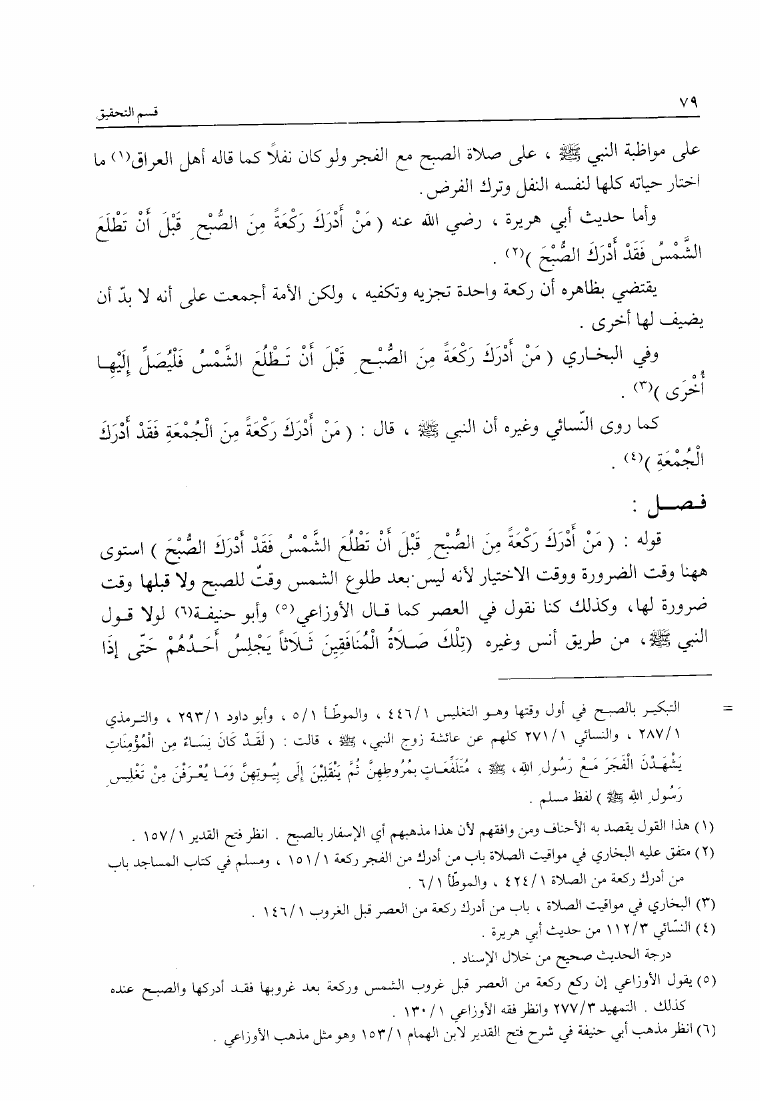 ٧٩
قسم التحقيق
على مواظبة النبي ﷺ ، على صلاة الصبح مع الفجر ولو كان نفلاً كما قاله أهل العراق(١) ما
اختار حياته كلها لنفسه النفل وترك الفرض .
وأما حديث أبي هريرة ، رضي الله عنه ( مَنْ أَدْرَكَ رَكْعَةً مِنَ الصُّبْحِ قَبْلَ أَنْ تَطْلَعَ
الشَّمْسُ فَقَدْ أَدْرَكَ الصُّبْحَ )(٢) .
يقتضي بظاهره أن ركعة واحدة تجزيه وتكفيه ، ولكن الأمة أجمعت على أنه لا بدّ أن
يضيف لها أخرى .
وفي البخاري ( مَنْ أَدْرَكَ رَكْعَةً مِنَ الصُّبْحِ قَبْلَ أَنْ تَطْلَعَ الشَّمْسُ فَلْيُصَلِّ إِلَيْهَا
أُخْرَى )(٣) .
كما روى النّسائي وغيره أن النبي ﷺ ، قال : ( مَنْ أَدْرَكَ رَكْعَةً مِنَ الْجُمْعَةِ فَقَدْ أَدْرَكَ
الْجُمْعَةِ )(٤) .
فصل :
قوله : ( مَنْ أَدْرَكَ رَكْعَةً مِنَ الصُّبْحِ قَبْلَ أَنْ تَطْلُعَ الشَّمْسُ فَقَدْ أَدْرَكَ الصُّبْحَ ) استوى
ههنا وقت الضرورة ووقت الاختيار لأنه ليس بعد طلوع الشمس وقتٌ للصبح ولا قبلها وقت
ضرورة لها، وكذلك كنا نقول في العصر كما قال الأوزاعي(٥) وأبو حنيفة(٦) لولا قول
النبي ﷺ، من طريق أنس وغيره (تِلْكَ صَلَاةُ الْمُنَافَقِينَ ثَلَاثاً يَجْلِسُ أَحَدُهُمْ حَتَّى إِذَا
= التبكير بالصبح في أول وقتها وهو التغليس ٤٤٦/١ ، والموطّأ ٥/١ ، وأبو داود ٢٩٣/١ ، والترمذي
٢٨٧/١ ، والنسائي ٢٧١/١ كلهم عن عائشة زوج النبي، ﷺ ، قالت : ( لَقَدْ كَانَ نِسَاءٌ مِن الْمُؤْمِنَاتِ
يَشْهَدْنَ الْفَجَرَ مَعَ رَسُولِ الله، ﷺ ، مُتَلَفِّعَاتٍ بِمُرُوطِهِنَّ ثُمَّ يَنْقَلِبْنَ إِلَى بِيُوتِهِنَّ وَمَا يُعْرَفْنَ مِنْ تَغْلِيسِ
رَسُولِ الله ﷺ ) لفظ مسلم .
(١) هذا القول يقصد به الأحناف ومن وافقهم لأن هذا مذهبهم أي الإسفار بالصبح . انظر فتح القدير ١٥٧/١ .
(٢) متفق عليه البخاري في مواقيت الصلاة باب من أدرك من الفجر ركعة ١٥١/١ ، ومسلم في كتاب المساجد باب
من أدرك ركعة من الصلاة ٤٢٤/١ ، والموطّأ ٦/١ .
(٣) البخاري في مواقيت الصلاة ، باب من أدرك ركعة من العصر قبل الغروب ١٤٦/١ .
(٤) النسّائي ١١٢/٣ من حديث أبي هريرة .
درجة الحديث صحيح من خلال الإسناد .
(٥) يقول الأوزاعي إن ركع ركعة من العصر قبل غروب الشمس وركعة بعد غروبها فقد أدركها والصبح عنده
كذلك . التمهيد ٢٧٧/٣ وانظر فقه الأوزاعي ١٣٠/١ .
(٦) انظر مذهب أبي حنيفة في شرح فتح القدير لابن الهمام ١٥٣/١ وهو مثل مذهب الأوزاعي .